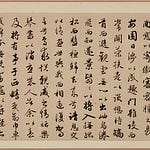 安園日涉以成趣門雖設而
常關策扶老以流憩時矯
首而遐觀雲無心以出岫鳥
倦飛而知還景翳翳以將入撫孤
松而盤桓歸去來兮請息交
以絕遊世與我而相遺復駕言
兮焉求悅親戚之情話樂
琴書以消憂農人告余以春
及將有事乎西疇或命巾